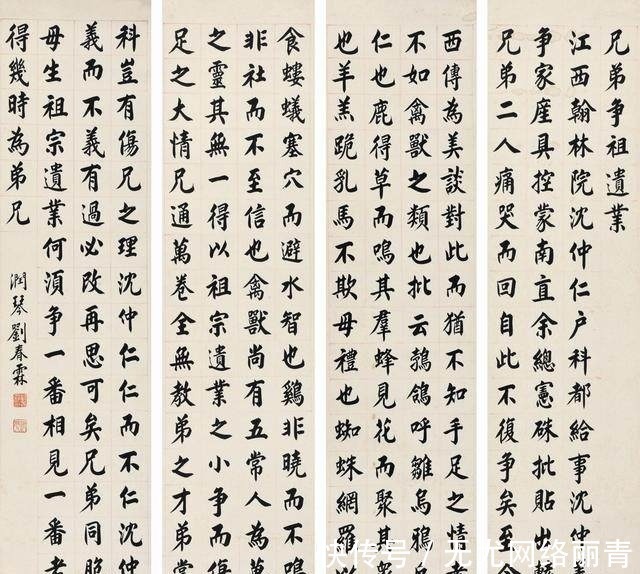 兄弟争祖遺業
江西翰林院沈仲仁户科都給事沈仲
争家産具控蒙南直余總憲硃批貼出
兄弟二人痛哭而回自此不復争矣至今
西傳為美談對此而猶不知手足之情者
不如禽獸之類也批云鵓鴿呼雛烏鴉
仁也鹿得草而鳴其羣蜂見花而聚其
也羊羔跪乳馬不欺母禮也蜘蛛網羅以
食螻蟻塞穴而避水智也鷄非曉而不鳴
非社而不至信也禽獸尚有五常人為萬
之靈其無一得以祖宗遺業之小争而
足之大情兄通萬卷全無教弟之才弟
科豈有傷兄之理沈仲仁仁而不仁沈仲
義而不義有過必改再思可矣兄弟同胞
母生祖宗遺業何須争一番相見一番老
得幾時為弟兄
潤琴劉春霖
快传号 / 无尤网络丽青